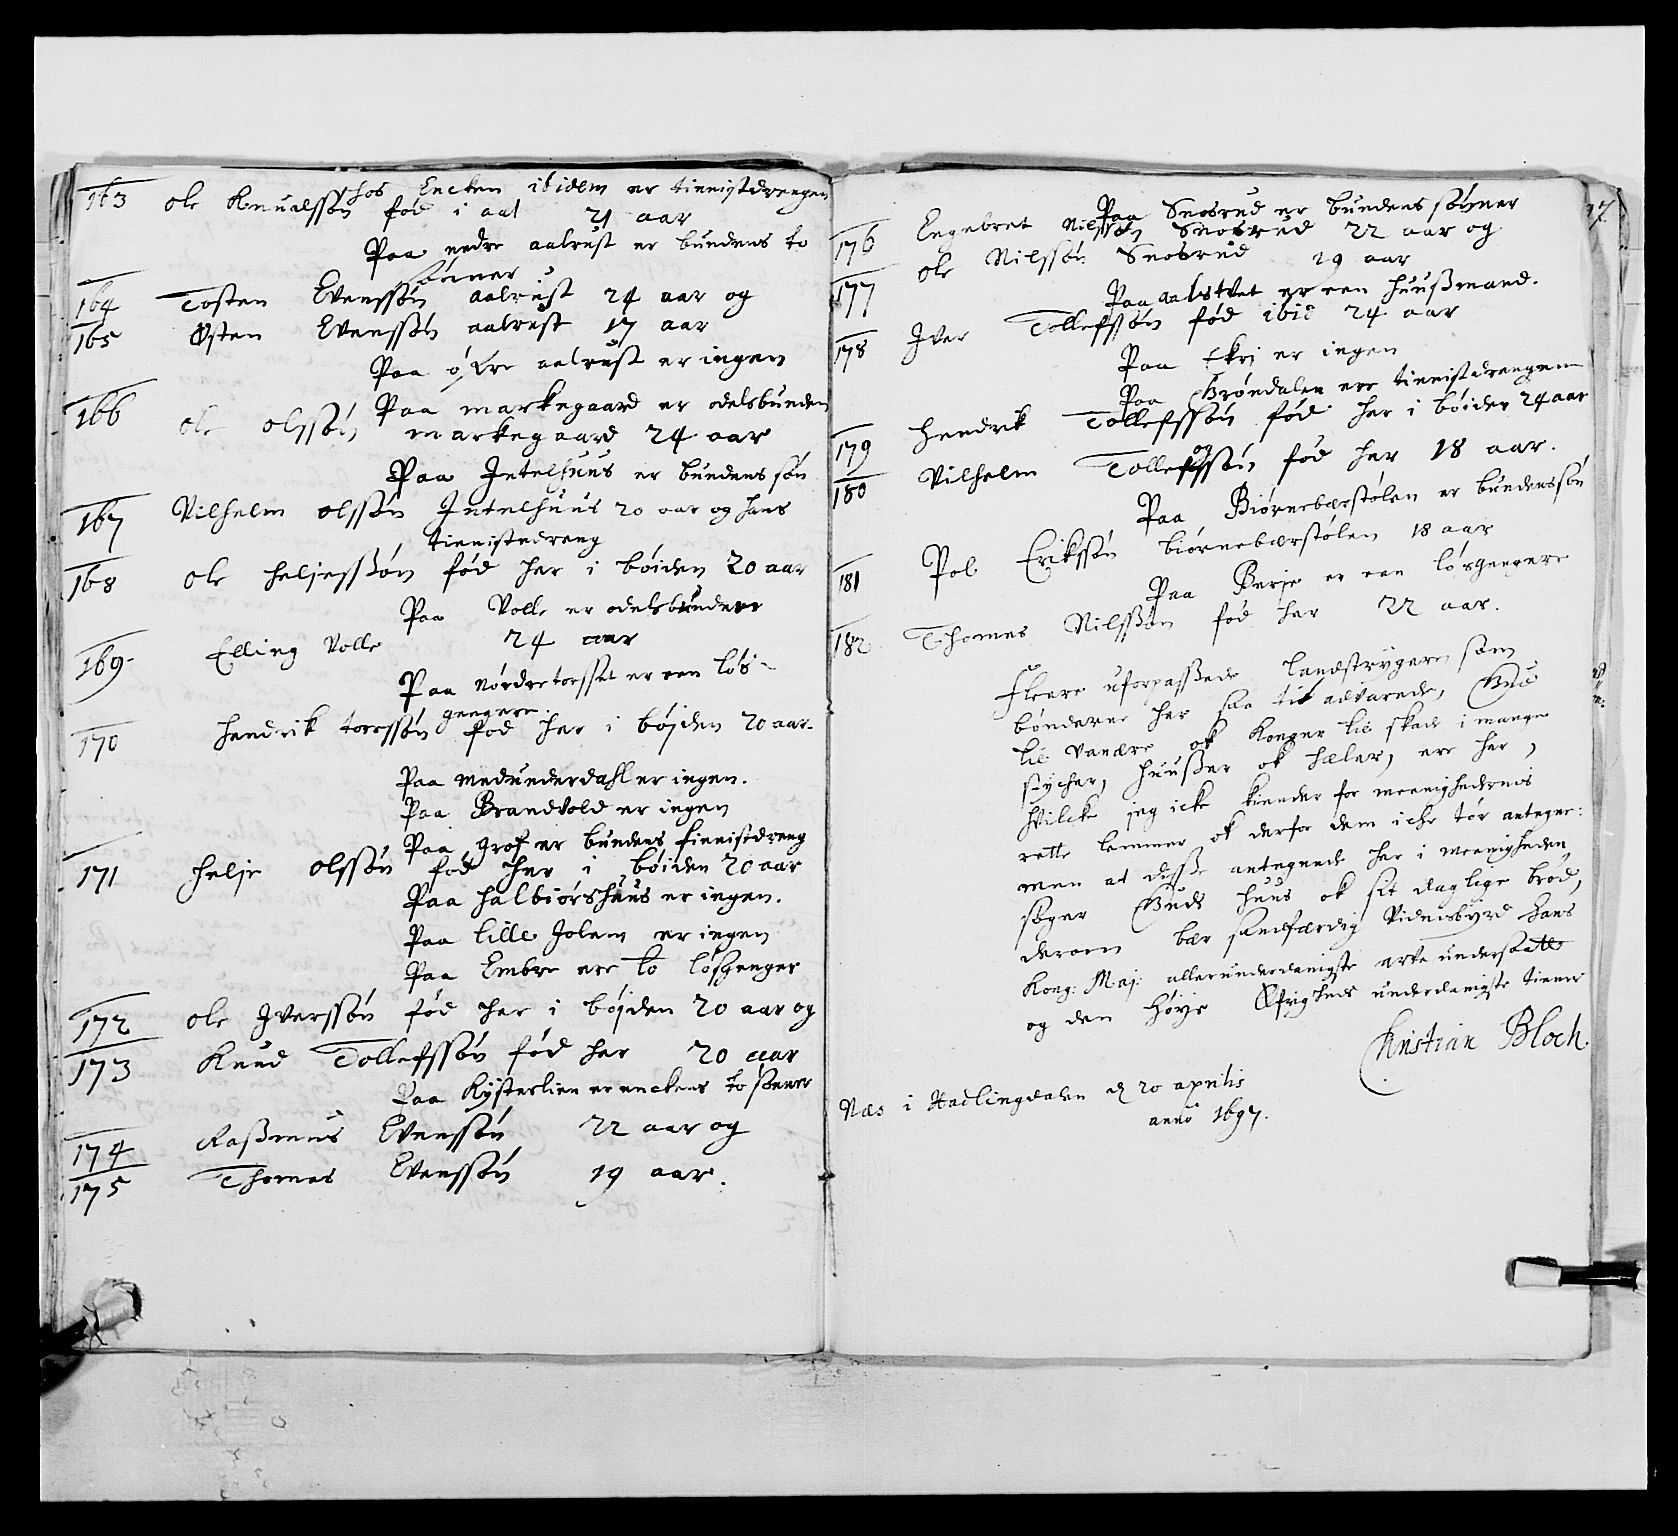 hos Encken ibidem er tienistdrengen
163 ole Knudssøn fød i aal 21 aar
Paa nedre aalrust er bundens to
sønner
164 Tosten Evenssøn aalrust 24 aar og
165 Østen Evenssøn aalrust 17 aar
Paa øfre aalrust er ingen
Paa markegaard er odelsbunden
166 ole olssøn markegaard 24 aar
Paa Intelhuus er bundens søn
167 Vilhelm olssøn Intelhuus 20 aar og hans
tienistedreng
168 ole heljessøn fød her i bøiden 20 aar
Paa Volle er odelsbunden
169 Elling Volle 24 aar
Paa nørdre er een løs-
gengere
170 hendrik torssøn fød her i bøjden 20 aar
Paa medunderdahl er ingen.
Paa Brandvold er ingen
Paa grøf er bundens tienistdreng
171 helje olssøn fød her i bøiden 20 aar
Paa halbiørshuus er ingen.
Paa lille Jolem er ingen
Paa Embre ere to løsgenger
172 ole Iverssøn fød her i bøjden 20 aar og
173 Knud Tollefssøn fød her 20 aar
Paa Rysterlien er enckens to sønner
174 Rasmus Evenssøn 22 aar og
175 Thomas Evenssøn 19 aar.
Paa Snosrud er bundens sønner
176 Engebret Nilssøn Snosrud 22 aar og
177 ole Nilssøn Snosrud 19 aar
Paa aalstvet er een huusmand.
178 Iver Tollefssøn fød ibid 24 aar
Paa Ekrj er ingen
Paa Grøndalen ere tienistdrengene
179 hendrik Tollefssøn fød her i bøiden 24 aar
og
180 Vilhelm Tollefssøn fød her 18 aar.
Paa Biørnebærstølen er bundenssøn
181 Pol Erikssøn biørnebærstølen 18 aar
Paa Berje er een løsgengere
182 Thomes Nilssøn fød her 22 aar.
Fleere uforpassede landstrygere som
bønderne her saa tit advarede, Gud
til vanære ok Kongen til skade i mange
, huusser ok hæler, ere her,
hvilcke jeg icke kiender for meenighedens
rette lemmer ok derfor dem icke tør antegne:
men at disse antegnede her i meenigheden
søger Guds huus ok sit daglige brød,
derom bær sandfærdig Vidnisbyrd hans
Kong: Maj: allerunderdanigste arfve undersaatte
og den høye Øfrigheds underdanigste tiener
Kristian Bloch.
Næs i Hadlingdalen d 20 aprilis
anno 1697.